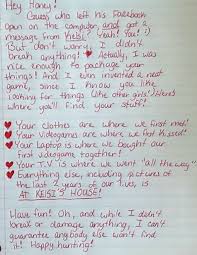 Hey Honey!
Guess who left his Facebook
open on the computer and got a
message from Keisi? Yeah! You! :)
But don't worry, I didn't
break anything! Actually, I was
nice enough to package your
things! And I even invented a neat
game, since I know you like
looking for things (like other girls!) Here's
where you'll find your stuff!
Your clothes are where we first met!
Your videogames are where we first kissed!
Your Laptop is where we bought our
first videogame together!
Your T.V. is where we went "all the way"
Everything else, including pictures of
the last 2 years of our lives, is
AT KEISI'S HOUSE!
Have fun! Oh, and while I didn't
break or damage anything, I can't
guarantee anybody else won't find
it! Happy hunting!